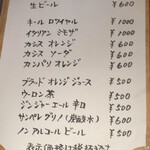 生ビール ¥600
キール ロワイヤル ¥1000
イタリアン ミモザ ¥1000
カシス オレンジ ¥600
カシス ソーダ ¥600
カンパリ オレンジ ¥600
ブラッド オレンジ ジュース ¥500
ウーロン茶 ¥500
ジンジャーエール 辛口 ¥500
サンペレグリノ(炭酸水) ¥600
ノン アルコール ビール ¥500
表示価格は税抜き